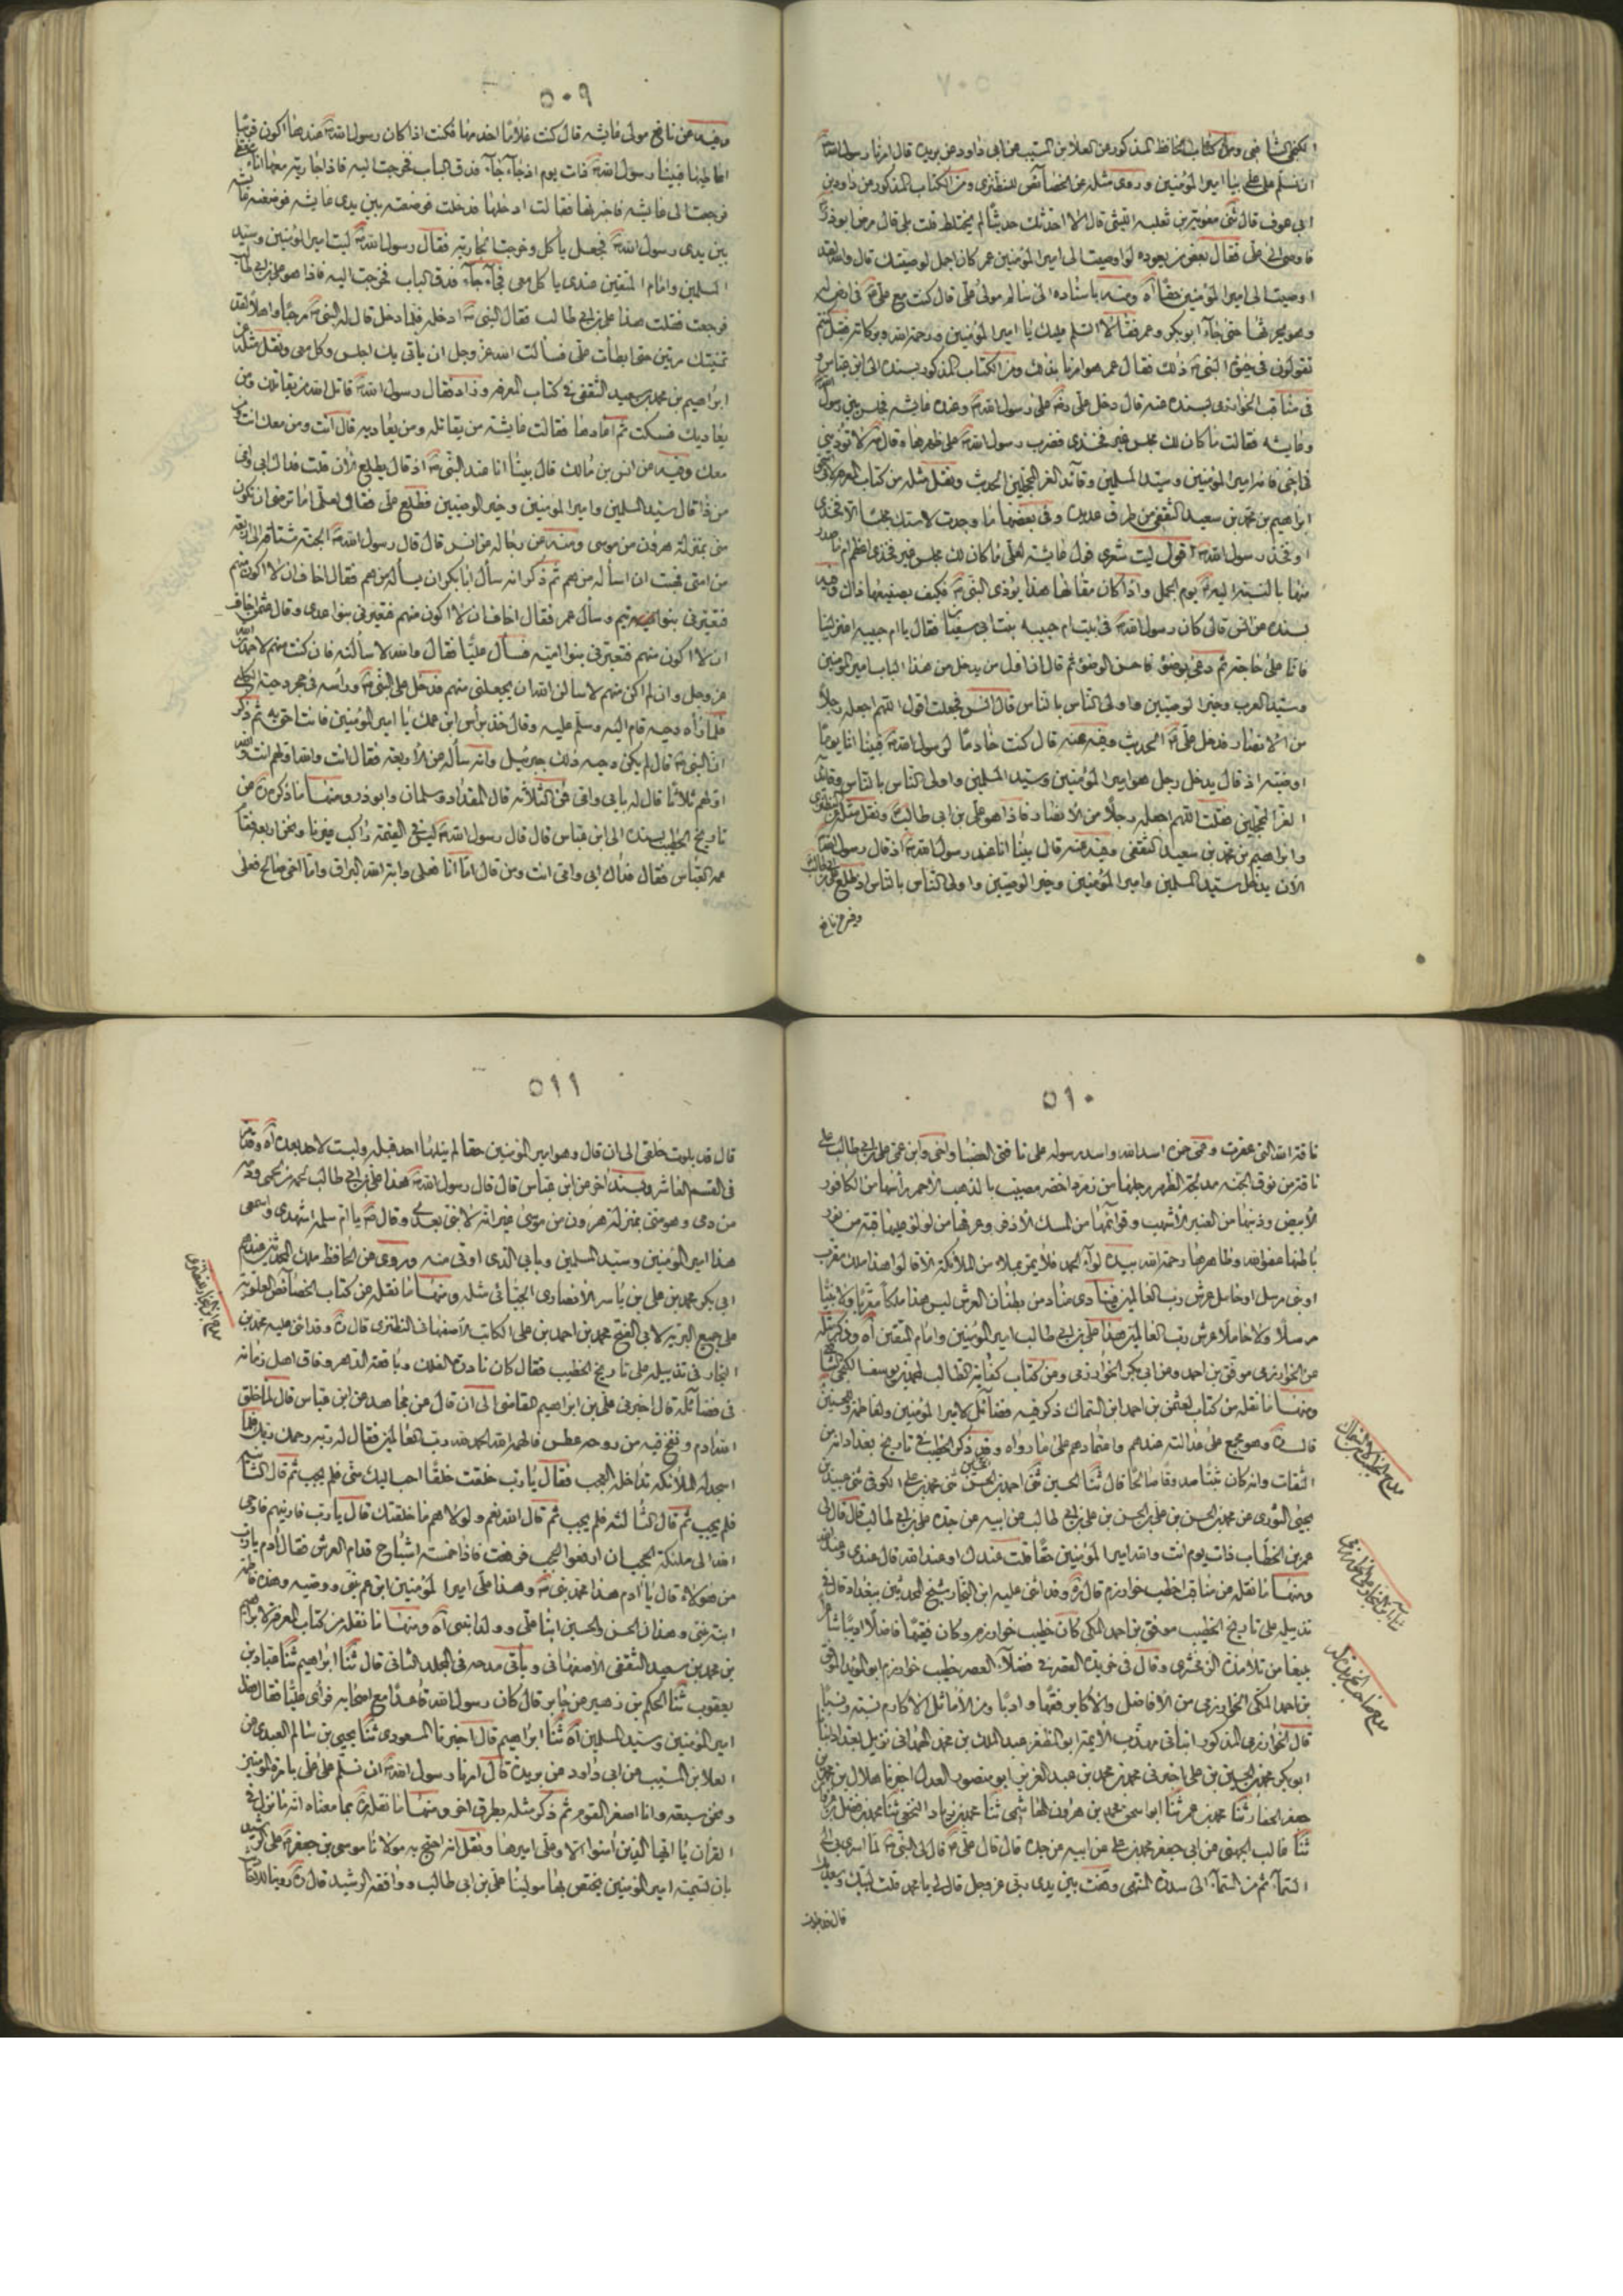 الكنجي الشافعي ومن كتاب الحافظ المذكور عن العلا بن المسيب عن ابي داود عن بريدة قال امرنا رسول الله
ان نسلم على علي بيا امير المؤمنين وروى مثله عن الخصائص للنطنزي ومن الكتاب المذكور عن داود بن
ابي عوف قال ثني معوية بن ثعلبة الليثي قال الا احدثك حديثا لم يختلط قلت بلى قال مرض ابوذر
فاوصى الى علي فقال بعض من يعوده لو اوصيت الى امير المؤمنين عمر كان اجمل لوصيتك قال والله لقد
اوصيت الى امير المؤمنين حقا اه ومنه باسناده الى سالم مولى علي قال كنت مع علي في ارض له
وهو يحرثها حتى جاء ابو بكر وعمر فقالا السلم عليك يا امير المؤمنين ورحمة الله وبركاته فقيل كنتم
تقولون في حيوة النبي ذلك فقال عمر هو امرنا بذلك ومن الكتاب المذكور بسنده الى ابن عباس و
في مناقب الخوارزمي بسنده عنه قال دخل علي على رسول الله وعنده عايشه فجلس بين رسول الله
وعايشه فقالت ما كان لك مجلس غير فخذي فضرب رسول الله على ظهرها وقال لا تؤذيني
في اخي فانه امير المؤمنين وسيد المسلمين وقائد الغر المحجلين الحديث ونقل مثله من كتاب المعرفة
ابراهيم بن محمد بن سعيد الثقفي من طرق عديدة وفي بعضها ما وجدت لاستك مجلسا الا فخذي
او فخذ رسول الله اقول ليت شعري قول عايشه لعلي ما كان لك مجلس غير فخذي اعظم ام ما صدر
منها بالنسبة اليه يوم الجمل واذا كان مقالها هذا يؤذي النبي فكيف بصنيعها ذاك وفيه
بسنده عن انس قال كان رسول الله في بيت ام حبيبه بنت ابي سفين فقال يا ام حبيبه اعتزلينا
فانا على حاجة ثم دعى بوضوء فاحسن الوضوء ثم قال ان اول من يدخل من هذا الباب امير المؤمنين
وسيد العرب وخير الوصيين واولى الناس بالناس قال انس فجعلت اقول اللهم اجعله رجلا
من الانصار فدخل علي الحديث وفيه عنه قال كنت خادما لرسول الله فبينا انا يوما
اوضيه اذ قال يدخل رجل هو امير المؤمنين وسيد المسلمين واولى الناس بالناس وقائد
الغر المحجلين فقلت اللهم اجعله رجلا من الانصار فاذا هو علي بن ابي طالب ونقل مثله
وابراهيم بن محمد بن سعيد الثقفي وفيه عنه قال بينا انا عند رسول الله اذ قال رسول الله
الان يدخل سيد المسلمين وامير المؤمنين وخير الوصيين واولى الناس بالناس اذ طلع علي بن ابي طالب
وفيه عن نافع
٥٠٩
وفيه عن نافع مولى عايشه قال كنت غلاما اخدمها فكنت اذا كان رسول الله عندها اكون قريبا
اعاطيها فبينا رسول الله ذات يوم اذ جاء جاء فدق الباب فخرجت اليه فاذا جارية معها اناء مغطى
فرجعت الى عايشه فاخبرتها فقالت ادخلها فدخلت فوضعته بين يدي عايشه فوضعته عايشه
بين يدي رسول الله فجعل ياكل وخرجت الجارية فقال رسول الله ليت امير المؤمنين وسيد
المسلمين وامام المتقين عندي ياكل معي فجاء جاء فدق الباب فخرجت اليه فاذا هو علي بن ابي طالب
فرجعت فقلت هذا علي بن ابي طالب فقال النبي ادخله فلما دخل قال له النبي مرحبا واهلا لقد
تمنيتك مرتين حتى ابطأت علي فسألت الله عز وجل ان يأتي بك اجلس وكل معي ونقل مثله عن
ابراهيم بن محمد بن سعيد الثقفي في كتاب المعرفة وزاد فقال رسول الله قاتل الله من يقاتلك ومن
يعاديك فسكت ثم اعادها فقالت عايشه من يقاتله ومن يعاديه قال انت ومن معك انت ومن
معك وفيه عن انس بن مالك قال بينا انا عند النبي اذ قال يطلع الان قلت فداك ابي وامي
من ذا قال سيد المسلمين وامير المؤمنين وخير الوصيين فطلع علي فقال لعلي اما ترضى ان تكون
مني بمنزلة هرون من موسى ومنه عن رجاله عن انس قال قال رسول الله الجنة مشتاقة الى اربعة
من امتي فهبت ان اسأله من هم ثم ذكر انه سأل ابا بكر ان يسأله من هم فقال اخاف ان لا اكون منهم
فتعيرني بنو تيم وسأل عمر فقال اخاف ان لا اكون منهم فتعيرني بنو عدي وقال عثمان اخاف
ان لا اكون منهم فتعيرني بنو امية فسأل عليا فقال والله لاسألنه فان كنت منهم لاحمدن الله
عز وجل وان لم اكن منهم لاسالن الله ان يجعلني منهم فدخل على النبي ورأسه في حجر دحية الكلبي
فلما رأه دحيه قام اليه وسلم عليه وقال خذ برأس ابن عمك يا امير المؤمنين فانت احق به ثم ذكر
ان النبي قال لم يكن دحيه ذلك جبرئيل وانه سأله عن الاربعة فقال انت والله اولهم انت والله
اولهم ثلاثا قال له بابي وامي فمن الثلاثه قال المقداد وسلمان وابوذر ومنها ما ذكره عن
تاريخ الخطيب بسنده الى ابن عباس قال قال رسول الله ليس في القيمة راكب غيرنا ونحن اربعة فقام
عمه العباس فقال فداك ابي وامي انت ومن قال اما انا فعلى دابة الله البراق واما اخي صالح فعلى
٥١٠
ناقة الله التي عقرت وعمي حمزة اسد الله واسد رسوله على ناقتي العضبا واخي وابن عمي علي بن ابي طالب على
ناقة من نوق الجنه مدبجة الظهر رجلها من زمرد اخضر مضبب بالذهب الاحمر راسها من الكافور
الابيض وذنبها من العنبر الاشهب وقوائمها من المسك الاذفر وعرفها من لؤلؤ عليها قبة من نور
باطنها عفو الله وظاهرها رحمة الله بيده لواء الحمد فلا يمر بملاء من الملائكة الا قالوا هذا ملك مقرب
او نبي مرسل او حامل عرش رب العالمين فينادي مناد من بطنان العرش ليس هذا ملكا مقربا ولا نبيا
مرسلا ولا حاملا عرش رب العالمين هذا علي بن ابي طالب امير المؤمنين وامام المتقين اه وذكر مثله
عن الخوارزمي موفق بن احمد وعن ابي بكر الخوارزمي ومن كتاب كفاية الطالب لمحمد بن يوسف الكنجي الشافعي
ومنها ما نقله من كتاب لعثمن بن احمد ابن السماك ذكر فيه فضائل لامير المؤمنين ولفاطمة والحسنين
قال وهو مجمع على عدالته عندهم واعتمادهم على ما رواه وقد ذكر الخطيب في تاريخ بغداد انه من
الثقات وانه كان ثبتا صدوقا صالحا قال ثنا الحسين ثني احمد بن الحسن ثني محمد بن علي الكوفي ثني عبيد بن
يحيى الثوري عن محمد بن الحسن بن علي بن الحسن بن علي بن ابي طالب عن ابيه عن جده علي بن ابي طالب قال قال لي
عمر بن الخطاب ذات يوم انت والله امير المؤمنين حقا قلت عندك او عند الله قال عندي وعند الله
ومنها ما نقله عن مناقب اخطب خوارزم قال وقد اثنى عليه ابن النجار شيخ المحدثين ببغداد قال في
تذييله على تاريخ الخطيب موفق بن احمد المكي كان خطيب خوارزم وكان فقيها فاضلا اديبا شاعرا
بليغا من تلامذة الزمخشري وقال في خريدة القصر في فضلاء العصر خطيب خوارزم ابو المؤيد الموفق
بن احمد المكي الخوارزمي من الافاضل والاكابر فقها وادبا ومن الاماثل الاكارم نسبة ونسبا
قال الخوارزمي المذكور انبأني مهذب الايمة ابو المظفر عبد الملك بن محمد الهمداني نزيل بغداد انبا
ابو بكر محمد بن الحسين بن علي اخبرني محمد بن محمد بن عبد العزيز ابو منصور العدل اخبرنا هلال بن محمد بن
جعفر الحفار ثنا محمد بن عمر ثنا ابو اسحق محمد بن هرون الهاشمي ثنا محمد بن زياد النخعي ثنا محمد بن فضيل بن غزوان
ثنا غالب الجهني عن ابي جعفر محمد بن علي عن ابيه عن جده قال قال علي قال لي النبي لما اسري بي الى
السماء ثم من السماء الى سدرة المنتهى وقفت بين يدي ربي عز وجل قال لي يا محمد قلت لبيك وسعديك
قال قد بلوت
٥١١
قال قد بلوت خلقي الى ان قال وهو امير المؤمنين حقا لم ينلها احد قبله وليست لاحد بعده اه وقد مر
في القسم العاشر وبسند اخر عن ابن عباس قال قال رسول الله هذا علي بن ابي طالب لحمه من لحمي ودمه
من دمي وهو مني بمنزلة هرون من موسى غير انه لا نبي بعدي وقال يا ام سلمة اشهدي واسمعي
هذا امير المؤمنين وسيد المسلمين وبابي الذي اوتى منه وروى عن الحافظ ملك المحدثين عندهم
ابي بكر محمد بن علي بن ياسر الانصاري الجياني مثله ومنها ما نقله عن كتاب الخصائص العلوية
على جميع البرية لابي الفتح محمد بن احمد بن علي الكاتب الاصفهاني النطنزي قال وقد اثنى عليه محمد بن
النجار في تذييله على تاريخ الخطيب فقال كان نادرة الفلك وباقعة الدهر وفاق اهل زمانه
في فضائله قال اخبرني علي بن ابراهيم القاضي الى ان قال عن مجاهد عن ابن عباس قال لما خلق
الله ادم ونفخ فيه من روحه عطس فالهمه الله الحمد لله رب العالمين فقال له ربه رحمك ربك فلما
اسجد له الملائكة تداخله العجب فقال يا رب خلقت خلقا احب اليك مني فلم يجب ثم قال الثانية
فلم يجب ثم قال الثالثه فلم يجب ثم قال الله نعم ولولاهم ما خلقتك قال يا رب فارنيهم فاوحى
الله الى ملئكة الحجب ان ارفعوا الحجب فرفعت فاذا خمسة اشباح قدام العرش فقال ادم يا رب
من هؤلاء قال يا ادم هذا محمد نبي وهذا علي امير المؤمنين ابن عم نبي ووصيه وهذه فاطمة
ابنة نبيي وهذان الحسن والحسين ابنا علي وولدا نبيي اه ومنها ما نقله من كتاب المعرفة لابراهيم
بن محمد بن سعيد الثقفي الاصفهاني وياتي مدحه في المجلد الثاني قال ثنا ابراهيم ثنا عباد بن
يعقوب ثنا الحكم بن زهير عن جابر قال كان رسول الله قاعدا مع اصحابه فرأى عليا فقال هذا
امير المؤمنين وسيد المسلمين اه ثنا ابراهيم قال اخبرنا المسعودي ثنا يحيى بن سالم العبدي عن
العلا بن المسيب عن ابي داود عن بريدة قال امرنا رسول الله ان نسلم على علي بامرة المؤمنين
ونحن سبعة وانا اصغر القوم ثم ذكر مثله بطرق اخر ومنها ما نقله بما معناه انه ما نزل في
القرآن يا ايها الذين آمنوا الا وعلي اميرها ونقل انه احتج به مولانا موسى بن جعفر على الرشيد
بان تسمية امير المؤمنين يختص بها مولينا علي بن ابي طالب ووافقه الرشيد قال